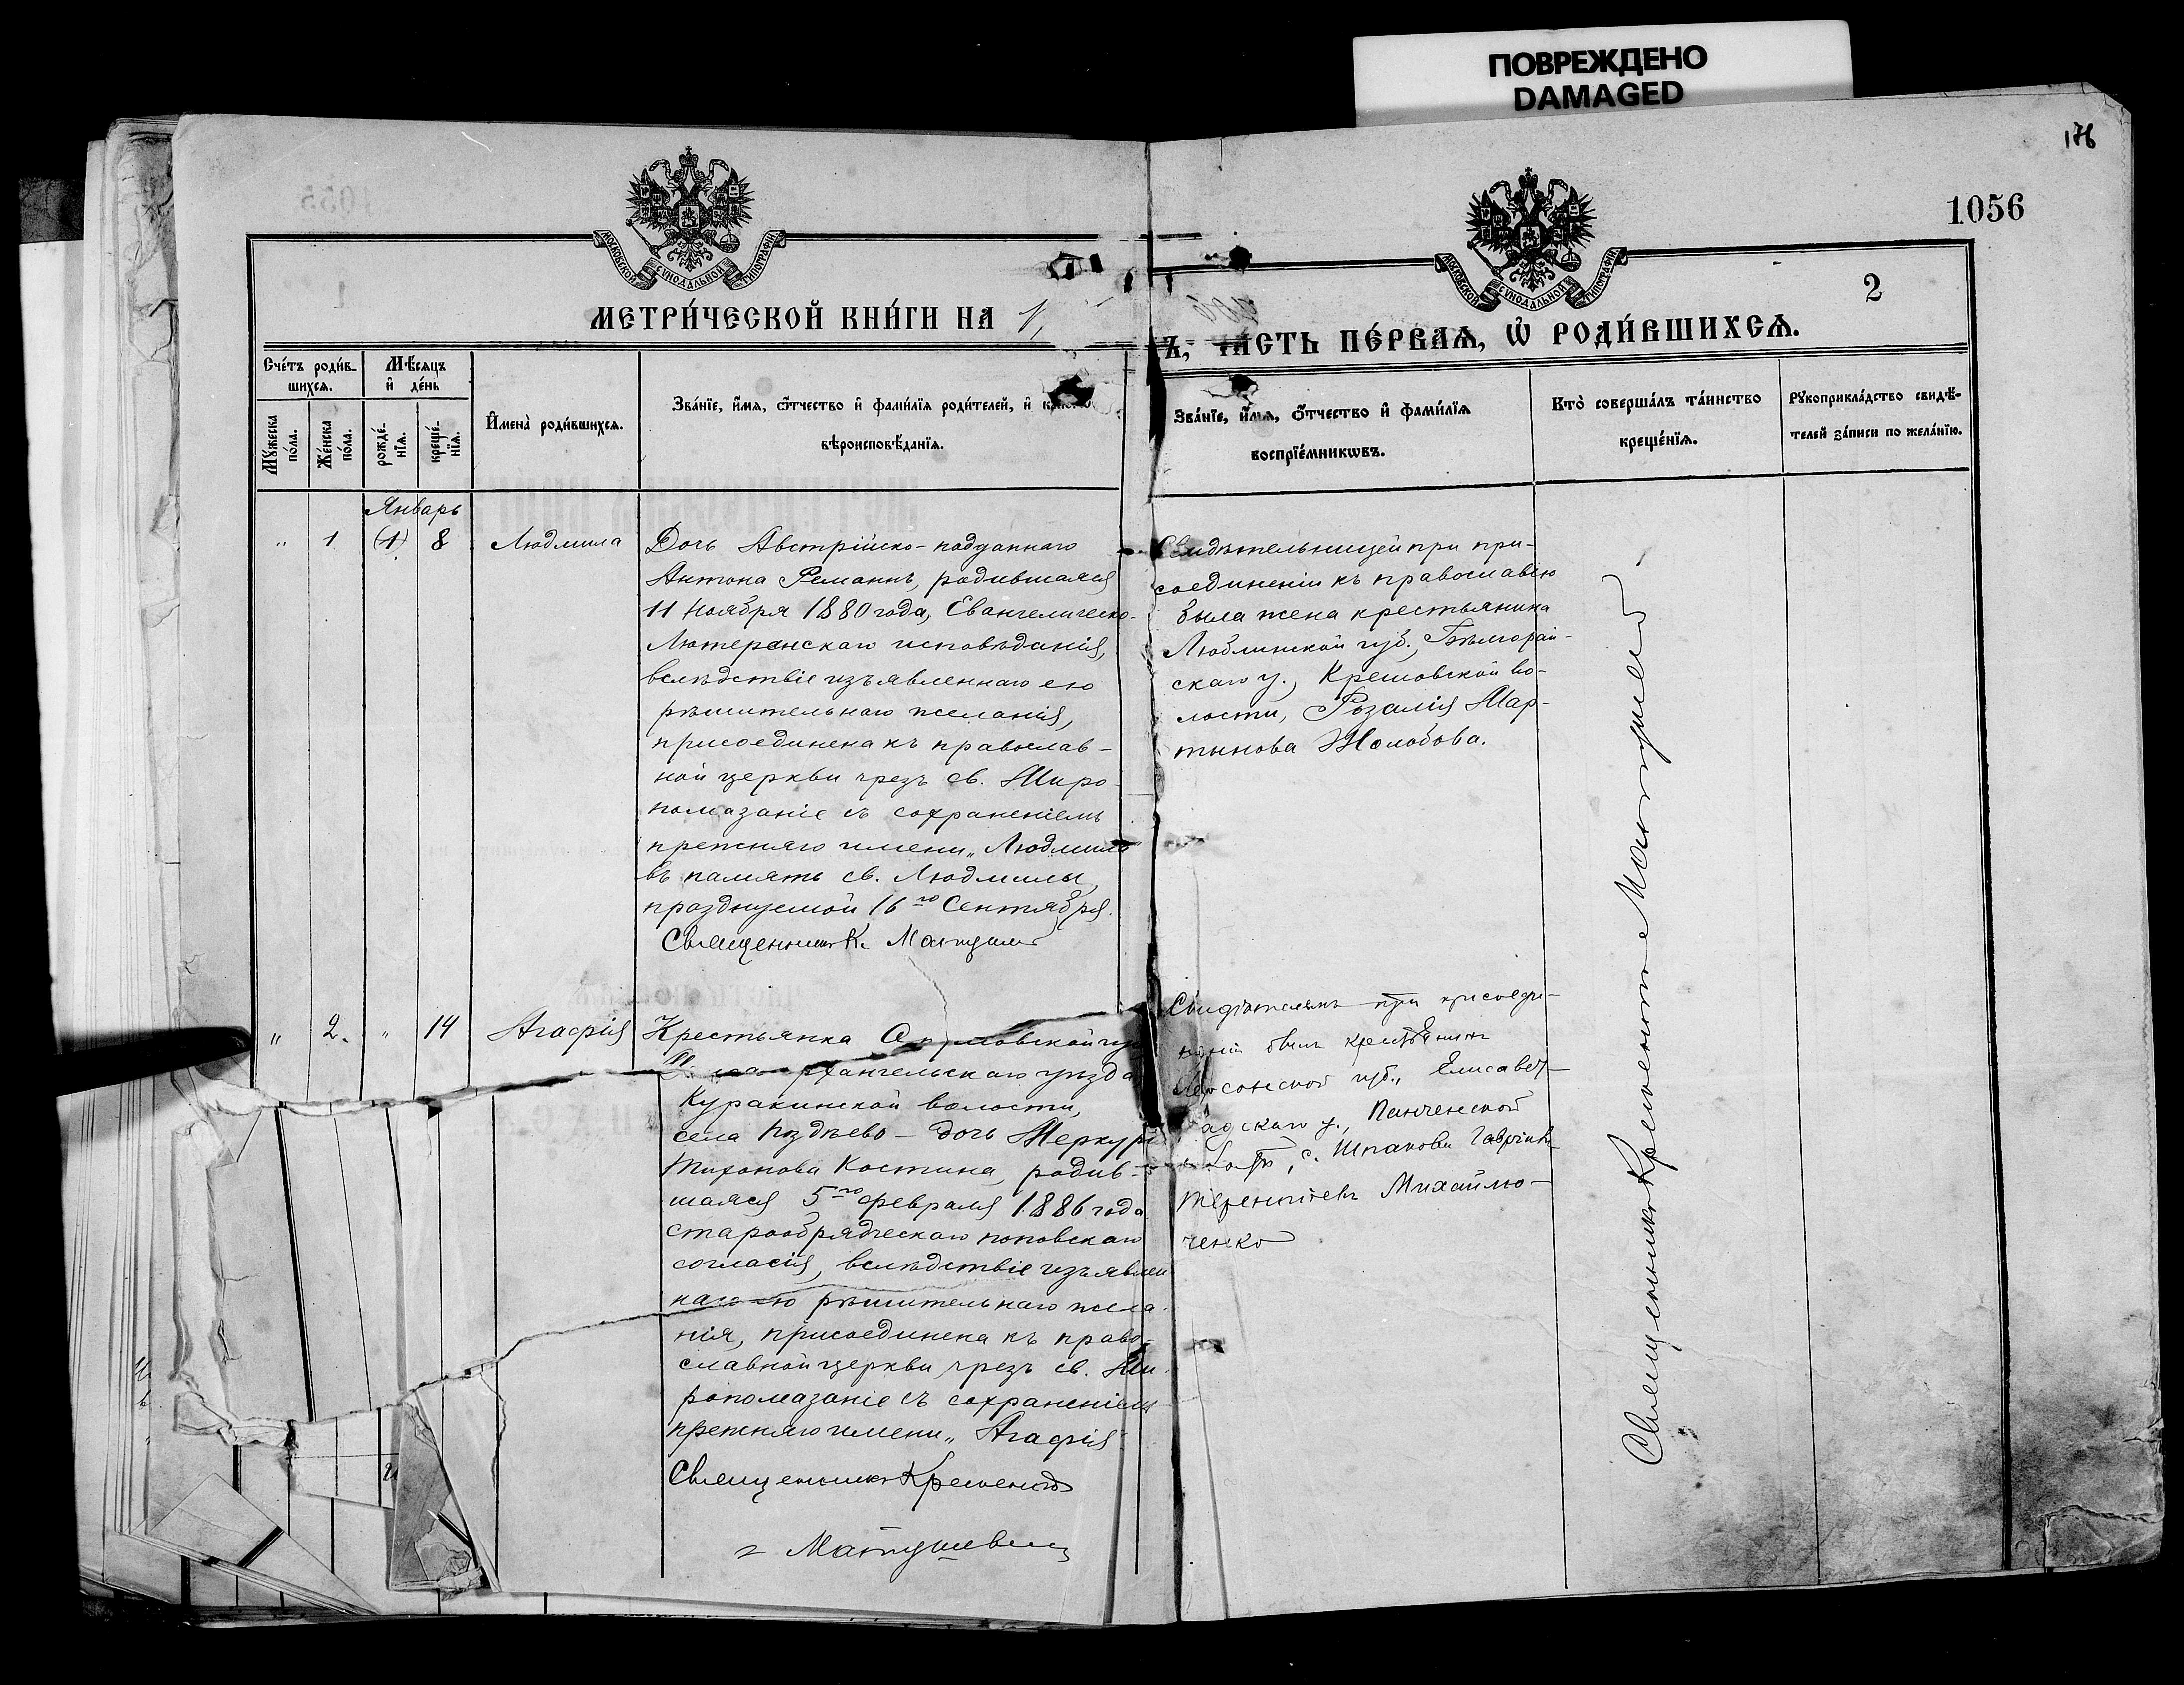 ПОВРЕЖДЕНО
DAMAGED
176
1056
МОСКОВСКОЙ СѴНОДАЛЬНОЙ ТИПОГРАФІИ
МОСКОВСКОЙ СѴНОДАЛЬНОЙ ТИПОГРАФІИ
2
МЕТРИ́ЧЕСКОЙ КНИ́ГИ НА 1
Ъ, ЧАСТЬ ПЕ́РВАѦ, Ѽ РОДИ́ВШИХСѦ.
Сче́тъ роди́в-
шихсѧ.
Мѣсѧцъ
и҆ де́нь
Мꙋ́жеска
по́ла.
Же́нска
по́ла.
рожде́-
нїѧ.
креще́-
нїѧ.
И҆мена̀ роди́вшихсѧ.
Зва́нїе, и҆́мѧ, ѻ҆́тчество и҆ фами́лїѧ роди́телей, и҆ како́гѡ
вѣроисповѣ́данїѧ.
Зва́нїе, и҆́мѧ, ѻ҆́тчество и҆ фами́лїѧ
воспрїе́мникѡвъ.
Кто̀ соверша́лъ та́инство
креще́нїѧ.
Рꙋкоприкла́дство свидѣ́-
телей за́писи по жела́нїю.
Январь
" 1 (1) 8 Людмила
Дочь Австрійско-подданнаго
Антона Реманнъ, родившаяся
11 Ноября 1880 года, Евангелическо-
Лютеранскаго исповѣданія,
вслѣдствіе изъявленнаго ею
рѣшительнаго желанія,
присоединена къ православ-
ной церкви чрезъ св. Миро-
помазаніе съ сохраненіемъ
прежняго имени „Людмила"
въ память св. Людмилы,
празднуемой 16го Сентября.
Священникъ К. Матуше
Свидѣтельницей при при-
соединеніи къ православію
была жена крестьянина
Люблинской губ., Бѣлгорай-
скаго у., Крешовской во-
лости, Розалія Мар-
тынова Жолобова.
" 2. " 14 Агафія
Крестьянка
архангельскаго уѣзда
Куракинской волости,
села Пздѣево - дочь Меркурія
Тихонова Костина, родив-
шаяся 5го февраля 1886 года
старообрядческаго поповскаго
согласія, вслѣдствіе изъявлен-
наго ею рѣшительнаго жела-
нія, присоединена къ право-
славной церкви чрезъ св. Ми-
ропомазаніе съ сохраненіемъ
прежняго имени „Агафія"
Священникъ Крементъ
Матушевич
Свидѣтелемъ при присоеди-
неніи былъ крестьянинъ
Херсонской губ., Елисавет-
градскаго у., Панченской
с. Шпакова Гавріилъ
Терентіевъ Михайлю-
ченко
Священникъ Крементъ Матушевич